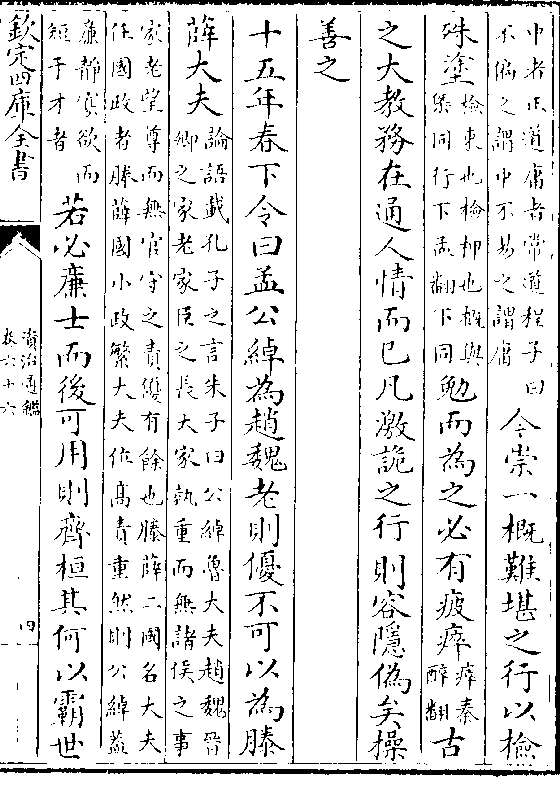 中者正道庸者常道程子曰
不偏之謂中不易之謂庸
今崇一概難堪之行以檢
殊塗
檢束也檢抑也概與
槩同行下孟翻下同
勉而為之必有疲瘁
瘁秦
醉翻
古
之大教務在通人情而已凡激詭之行則容隱偽矣操
善之
十五年春下令曰孟公綽為趙魏老則優不可以為滕
薛大夫
論語載孔子之言朱子曰公綽魯大夫趙魏晉
卿之家老家臣之長大家埶重而無諸侯之事
家老望尊而無官守之責優有餘也滕薛二國名大夫
任國政者滕薛國小政繁大夫位高責重然則公綽蓋
廉靜寡欲而
短于才者
若必廉士而後可用則齊桓其何以霸世
欽定四庫全書
資治通鑑
卷六十六
四